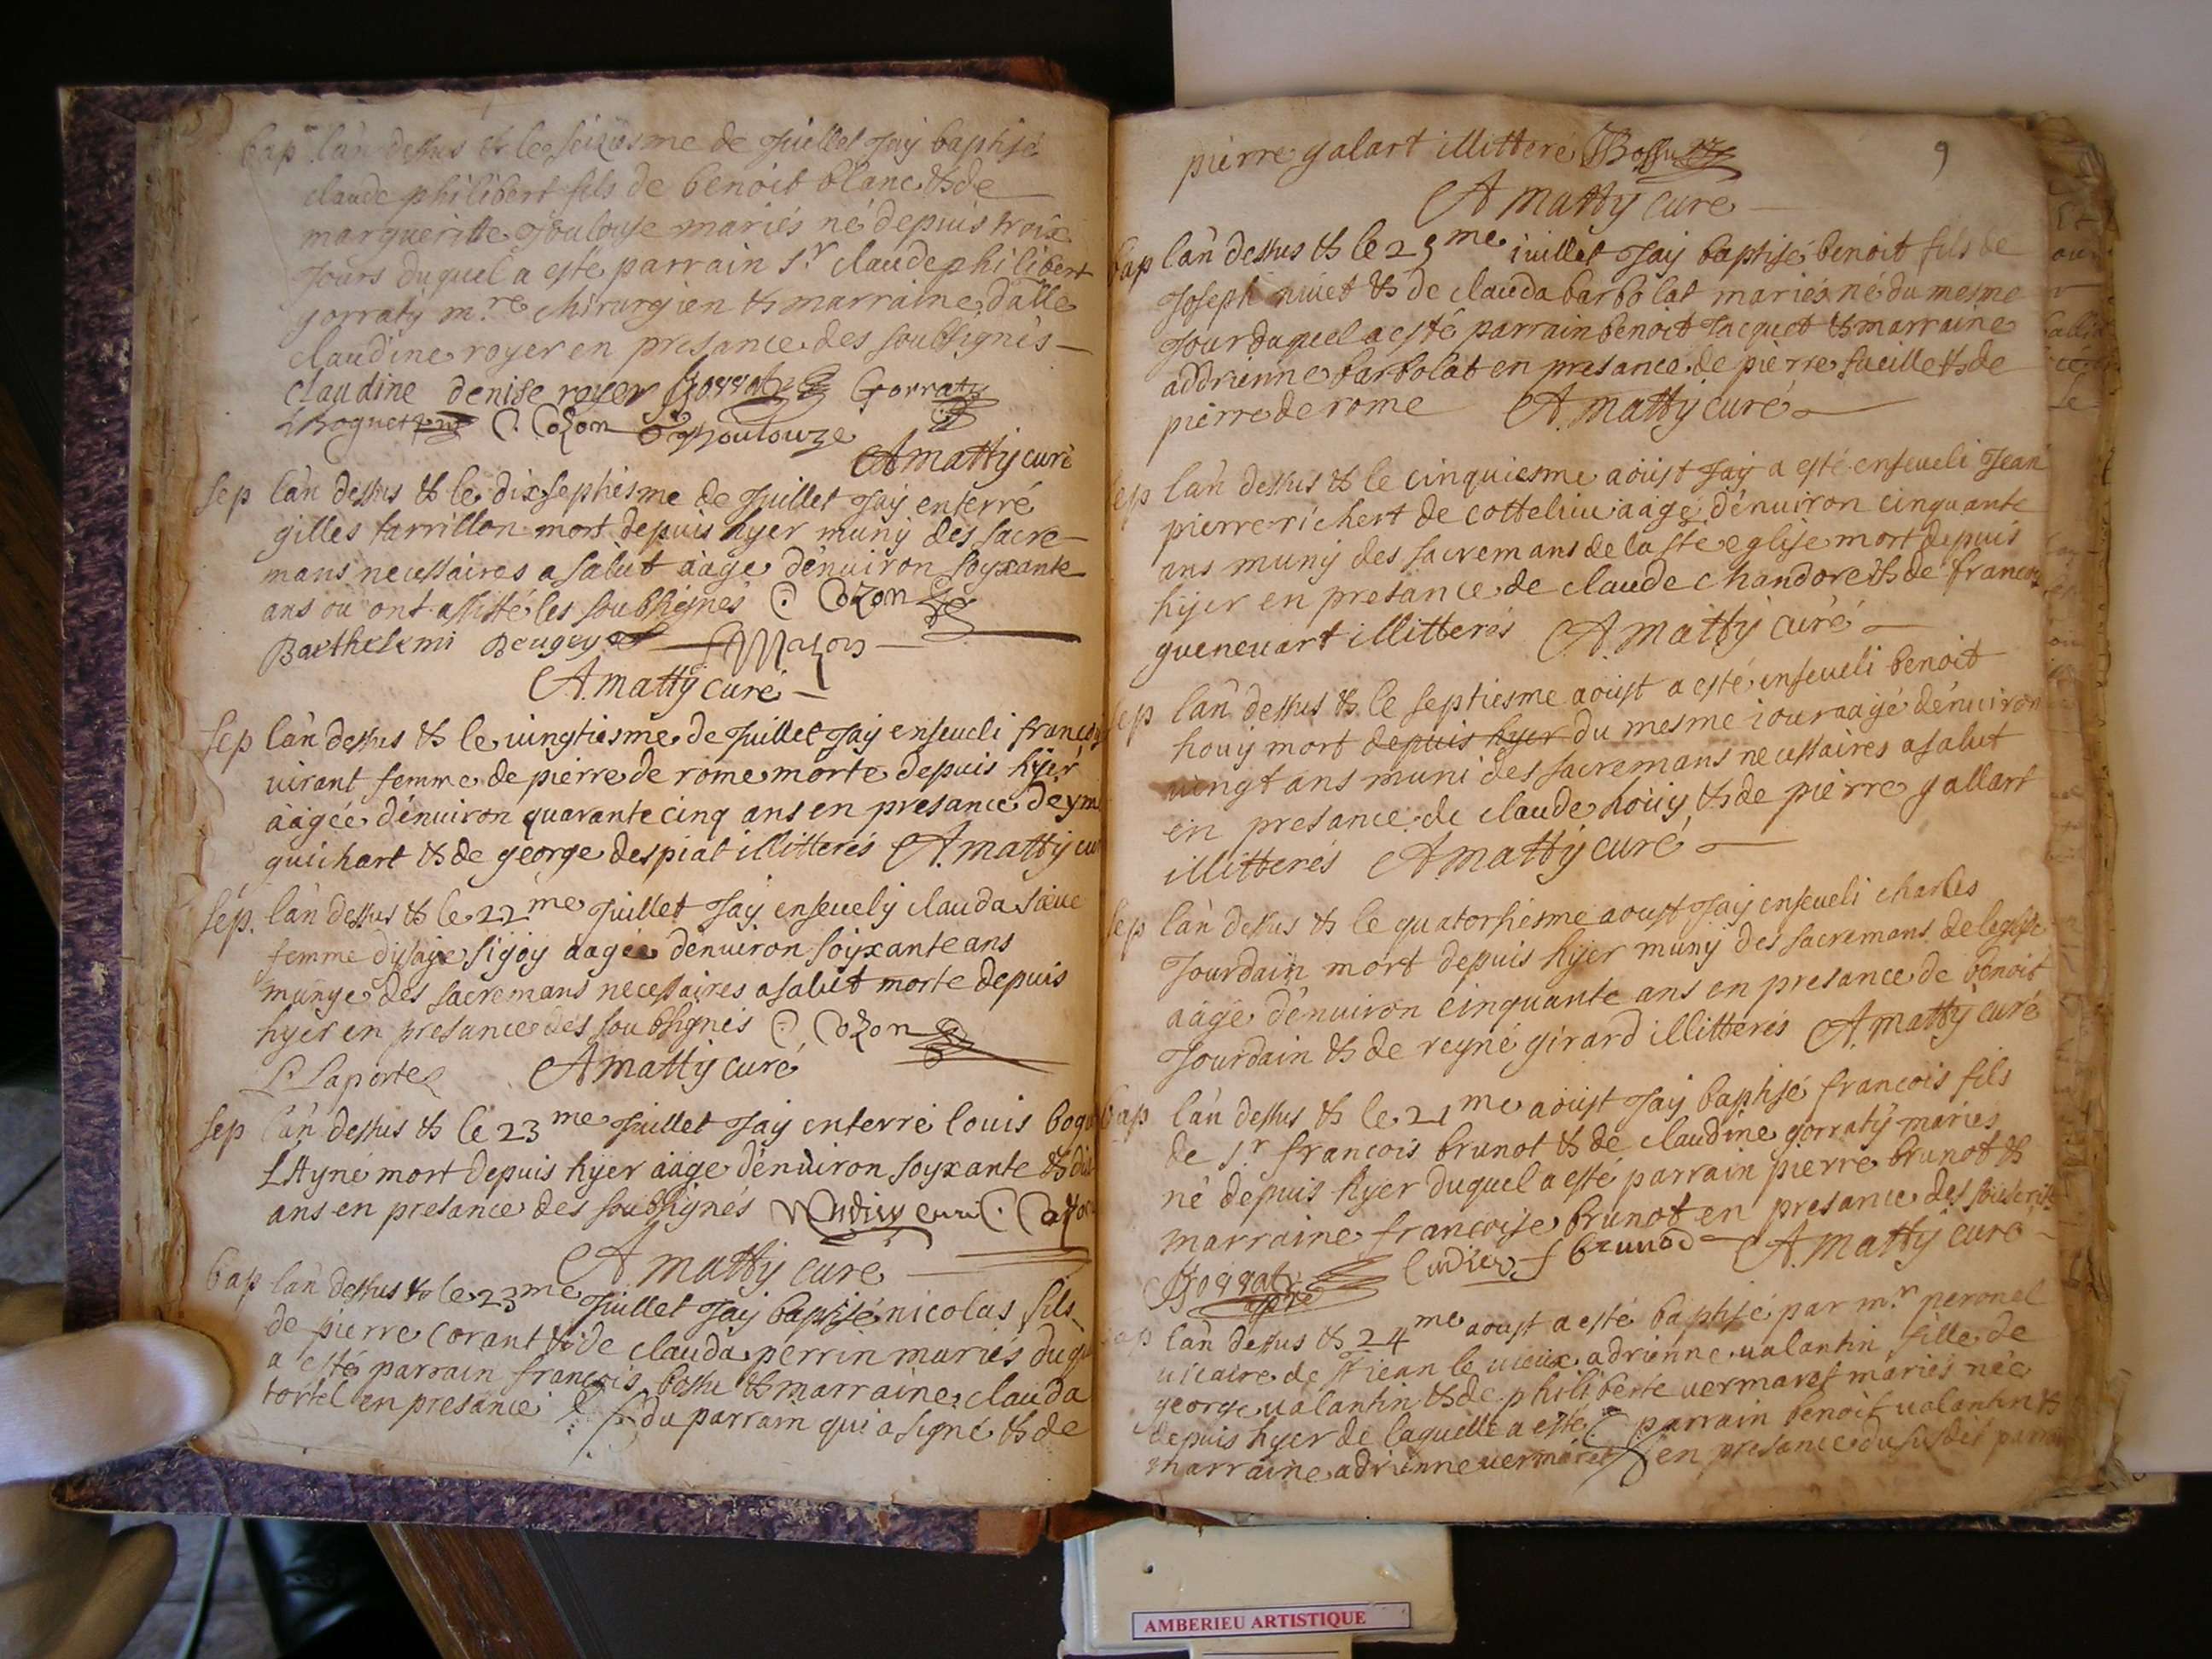 bap lan dessus & le seiziesme de Juillet Jay baptisé
claude philibert fils de benoit blanc & de
marguerite Toulouse mariés né depuis trois
Jours duquel a esté parrain s.r claude philibert
gorraty m.re chirurgien & marraine dalle
claudine royer en presance des soubsignés
claudine denise royer Gorraty Gorraty
C. Cozon Thoulouze
A matty curé
sep lan dessus & le dixsephiesme de Juillet Jay enterré
gilles tarrillon mort depuis hyer muny des sacre-
mans necessaires a salut aagé denuiron soyxante
ans ou ont assisté les soubsignés C. Cozon
Barthelemi Beugey Mazoir
A. matty curé
sep lan dessus & le uingtiesme de Juillet Jay enseueli francoi
uirant femme de pierre de rome morte depuis hyer
aagée denuiron quarante cinq ans en presance de ym
guichart & de george despiat illitterés A. matty cu
sep. lan dessus & le 22me Juillet Jay enseuely clauda sieue
femme disaye sigoy aagée denuiron soyxante ans
munye des sacremans necessaires a salut morte depuis
hyer en presance des soubsignés C. Cozon
L Laporte A matty curé
sep lan dessus & le 23me Juillet Jay enterré louis bogu
LAyné mort depuis hyer aagé denuiron soyxante & dix
ans en presance des soubsignés C. Cozon
A. matty curé
bap lan dessus & le 23me Juillet Jay baptisé nicolas fils
de pierre corant & de clauda perrin mariés duqu
a esté parrain francois bossu & marraine clauda
tortel en presance du parrain qui a signé & de
9
pierre galart illitteré Bossu
A matty curé
bap lan dessus & le 25me iuillet Jay baptisé benoit fils de
Joseph niuet & de clauda barbolat mariés né du mesme
Jour duquel a esté parrain benoit Jacquet & marraine
addrienne barbolat en presance de pierre fueille & de
pierre de rome A. matty curé
sep lan dessus & le cinquiesme aoust Jay a esté enseueli Jean
pierre richert de cottelieu aagé denuiron cinquante
ans muny des sacremans de la ste eglise mort depuis
hyer en presance de claude chandore & de francois
gueneuart illitterés A. matty curé
sep lan dessus & le septiesme aoust a esté enseueli benoit
houy mort depuis hyer du mesme iour aagé denuiron
uingt ans muni des sacremans necessaires a salut
en presance de claude houy & de pierre gallart
illitterés A matty curé
sep lan dessus & le quatorsiesme aoust Jay enseueli charles
Jourdain mort depuis hyer muny des sacremans de leglise
aagé denuiron cinquante ans en presance de benoit
Jourdain & de reyné girard illitterés A. matty curé
bap lan dessus & le 21me aoust Jay baptisé francois fils
de s.r francois brunot & de claudine gorraty mariés
né depuis hyer duquel a esté parrain pierre brunot &
marraine francoise brunot en presance des souscrits
Gorraty ludieu f brunod A. matty curé
bap lan dessus & 24me aoust a esté baptisé par m.r peronel
uicaire de st iean le uieux adrienne ualantin fille de
george ualantin & de philiberte uermaret mariés née
depuis hyer de laquelle a esté parrain benoit ualantin &
marraine adrienne uermaret en presance du susdit parrain
AMBERIEU ARTISTIQUE